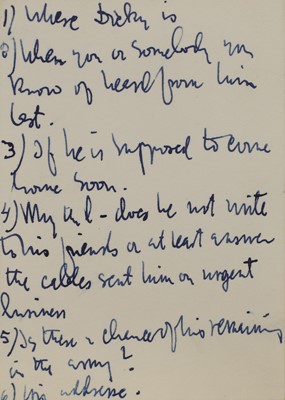 1) Where Dicky is
2) When you or somebody you
know of heard from him
last.
3) If he is supposed to come
home soon.
4) Why the - does he not write
to his friends or at least answer
the cables sent him on urgent
business
5) Is there a chance of his remaining
in the army?
6) His address.